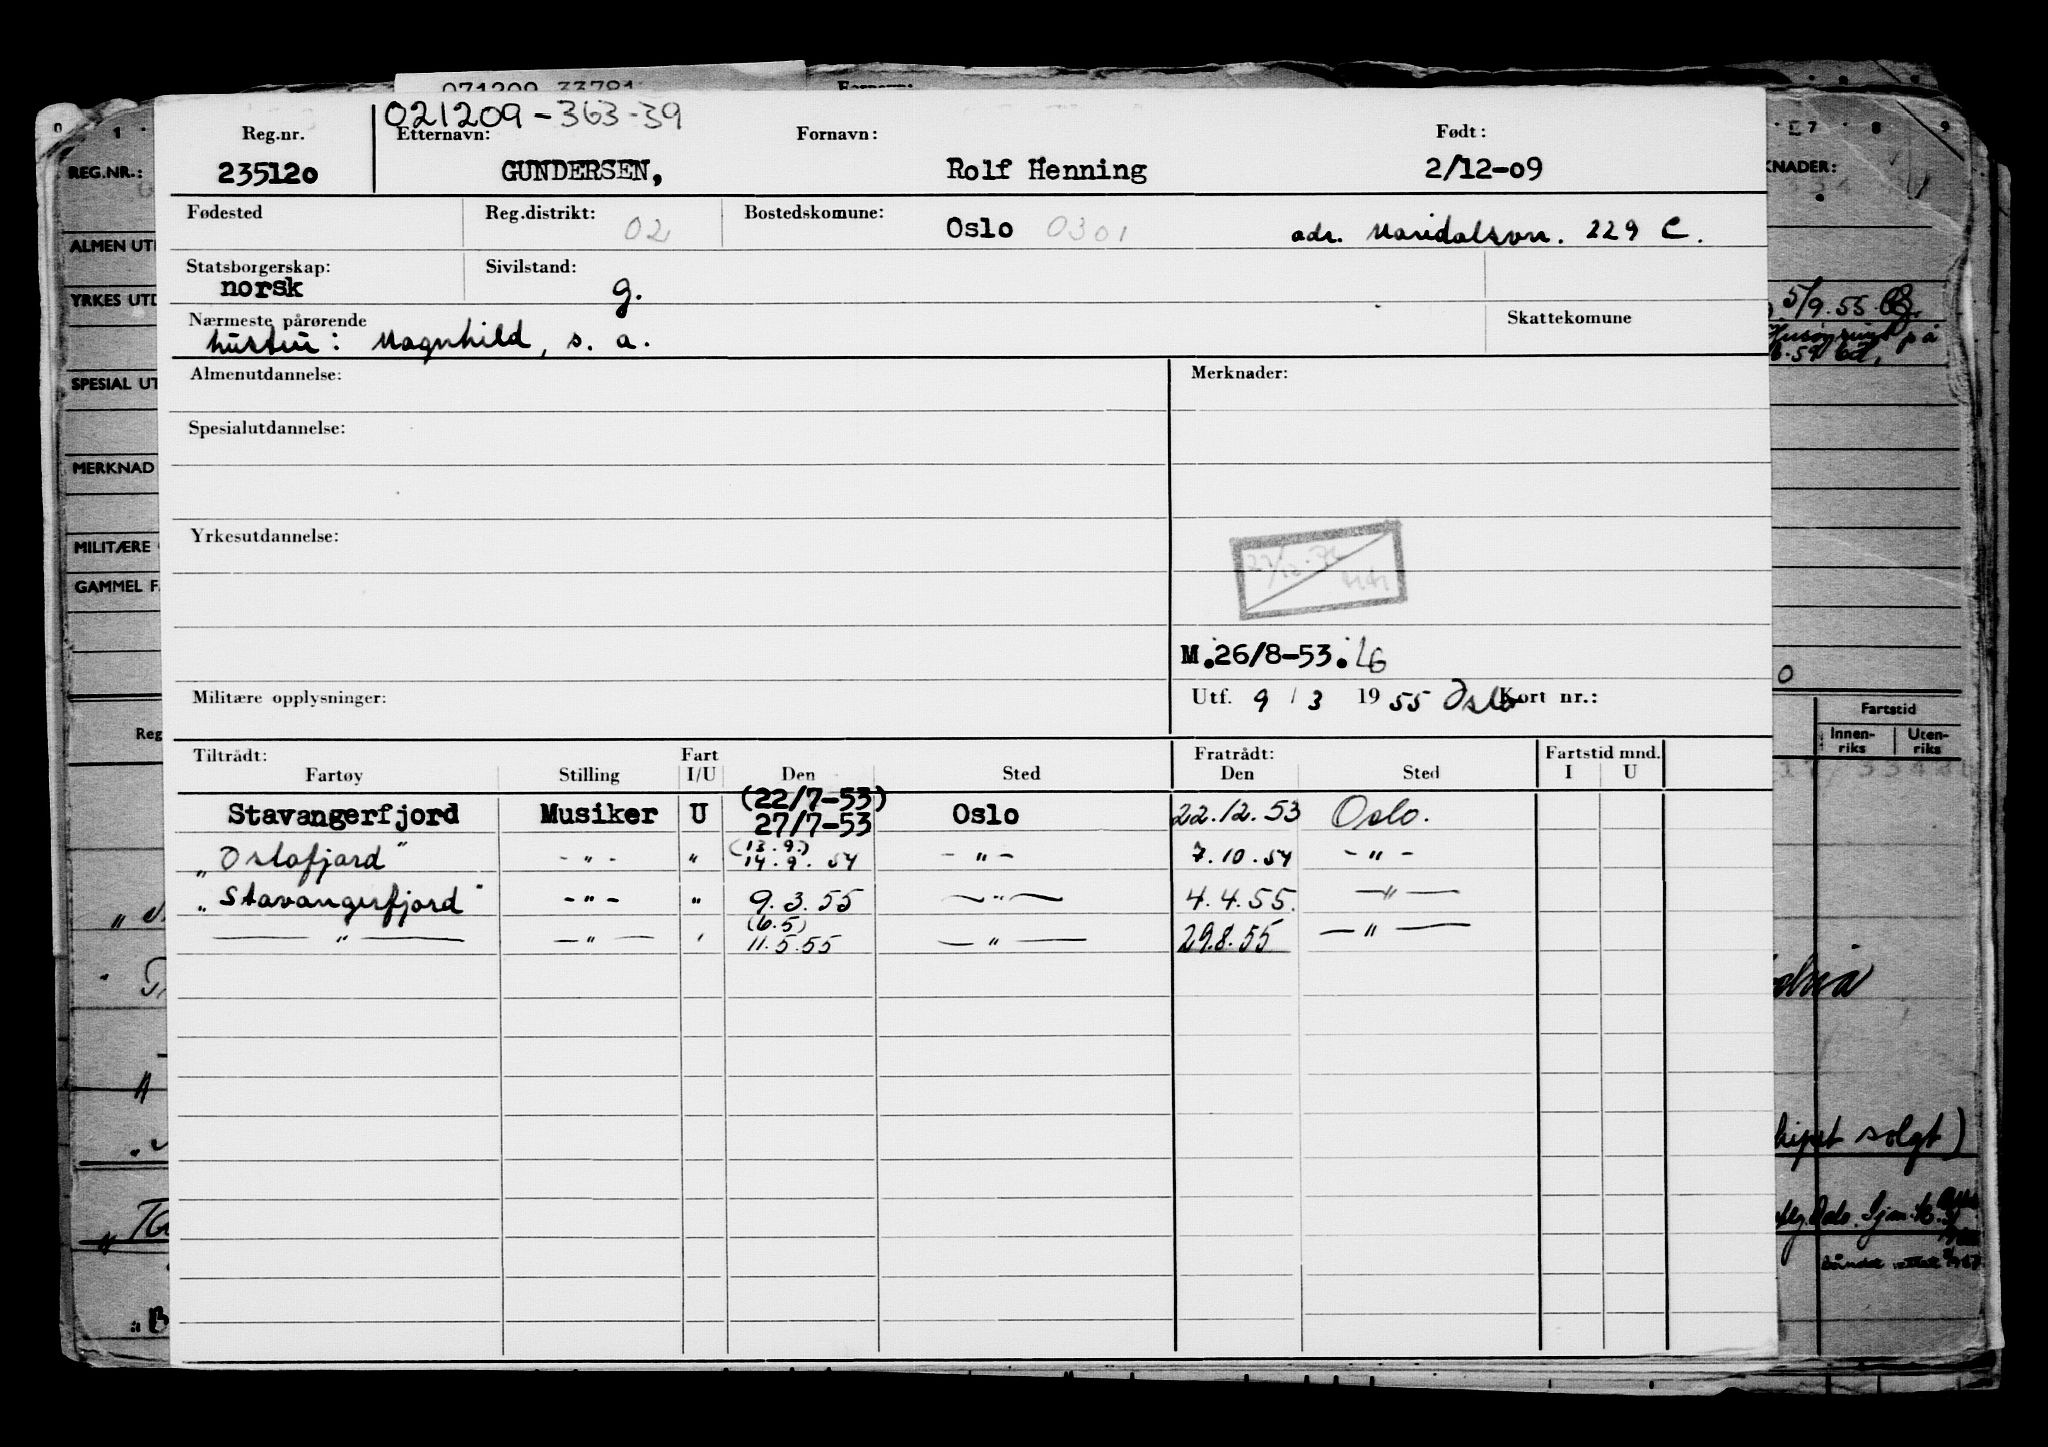 071209 33781
021209-363-39
Reg.nr. Etternavn: Fornavn: Født:
235120 GUNDERSEN, Rolf Henning 2/12-09
Fødested Reg.distrikt: 02 Bostedskomune: Oslo 0301 adr. Maridalsvn. 229 C.
Statsborgerskap: norsk Sivilstand: g.
Nærmeste pårørende Skattekomune
hustru: Magnhild, s. a.
Almenutdannelse: Merknader:
Spesialutdannelse:
Yrkesutdannelse:
M.26/8-53. LG
Militære opplysninger: Utf. 9 / 3 1955 Oslo Kort nr.:
Tiltrådt: Fart Fratrådt: Fartstid mnd.
Fartøy Stilling I/U Den Sted Den Sted I U
(22/7-53)
Stavangerfjord Musiker U 27/7-53 Oslo 22.12.53 Oslo.
(13.9.)
"Oslofjord" - " - " 14.9.54 - " - 7.10.54 - " -
"Stavangerfjord" - " - " 9.3.55 - " - 4.4.55. - " -
(6.5)
- " - - " - " 11.5.55 - " - 29.8.55 - " -
REG.NR.:
ALMEN UT
YRKES UTD
SPESIAL UT
MERKNAD
MILITÆRE
GAMMEL F
Reg
KNADER:
5/9.55
Fartstid
Innen-riks Uten-riks
solgt)